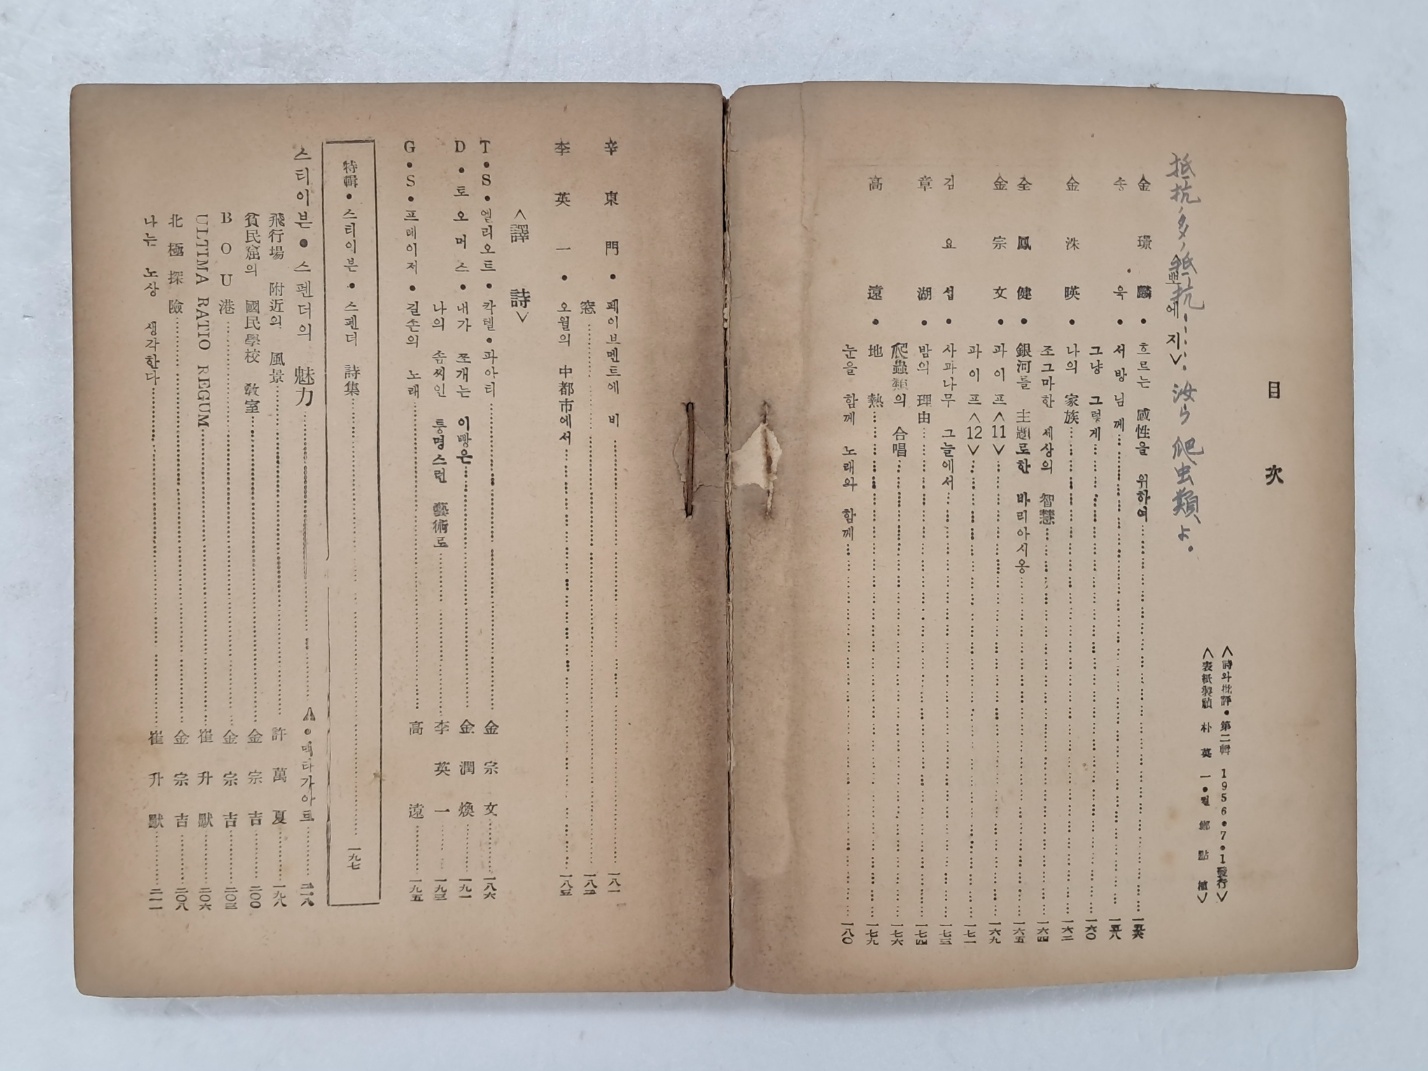 目 次
<詩와批評•第二輯 1956•7•1發行>
<表紙製幀 朴英一•컽 鄕點植>
抵抗、多、抵抗‥‥‥汝ら爬虫類よ.
에 지>
金璟麟•흐르는 感性을 위하여
송욱•서방님께
그냥 그렇게 一六〇
金洙暎•나의 家族 一六二
조그마한 세상의 智慧 一六四
全鳳健•銀河를 主題로한 바리아시옹 一六五
金宗文•파이프<11> 一六九
파이프<12> 一七一
김요섭•사과나무 그늘에서 一七三
章湖•밤의 理由 一七四
爬蟲類의 合唱 一七六
高遠•地熱 一七九
눈을 함께 노래와 함께 一八〇
辛東門•페이브멘트에 비 一八一
窓 一八二
李英一•오월의 中都市에서 一八五
<譯 詩>
T•S•엘리오트•칵텔•파아티 金宗文 一八六
D•토오머스•내가 쪼개는 이빵은 金潤煥 一九一
나의 솜씨인 퉁명스런 藝術로 李英一 一九三
G•S•프레이저•길손의 노래 高遠 一九五
特輯•스티이븐•스펜더 詩集 一九七
스티이븐•스펜더의 魅力 A•맥타가아트
飛行場 附近의 風景 許萬夏 一九八
貧民窟의 國民學校 敎室 金宗吉 二〇〇
BOU港 金宗吉 二〇三
ULTIMA RATIO REGUM 崔升默 二〇六
北極探險 金宗吉 二〇八
나는 노상 생각한다 崔升默 二一一